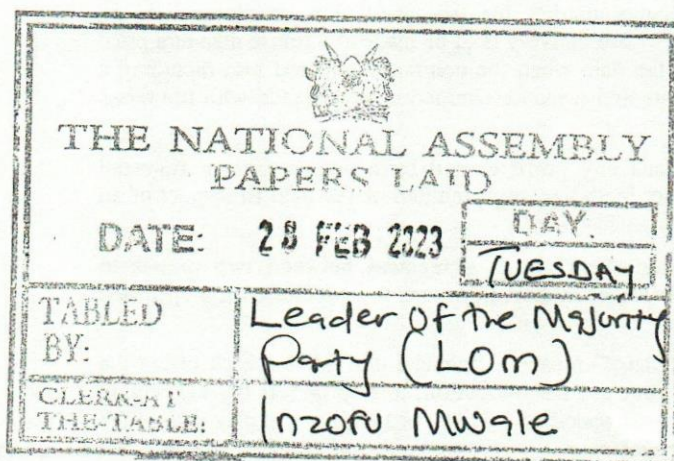 THE NATIONAL ASSEMBLY
PAPERS LAID
DATE: 28 FEB 2023
DAY.
TUESDAY
TABLED
BY:
Leader of the Majority
Party (LOM)
CLERK-AT
THE-TABLE:
Inzofu Mwale